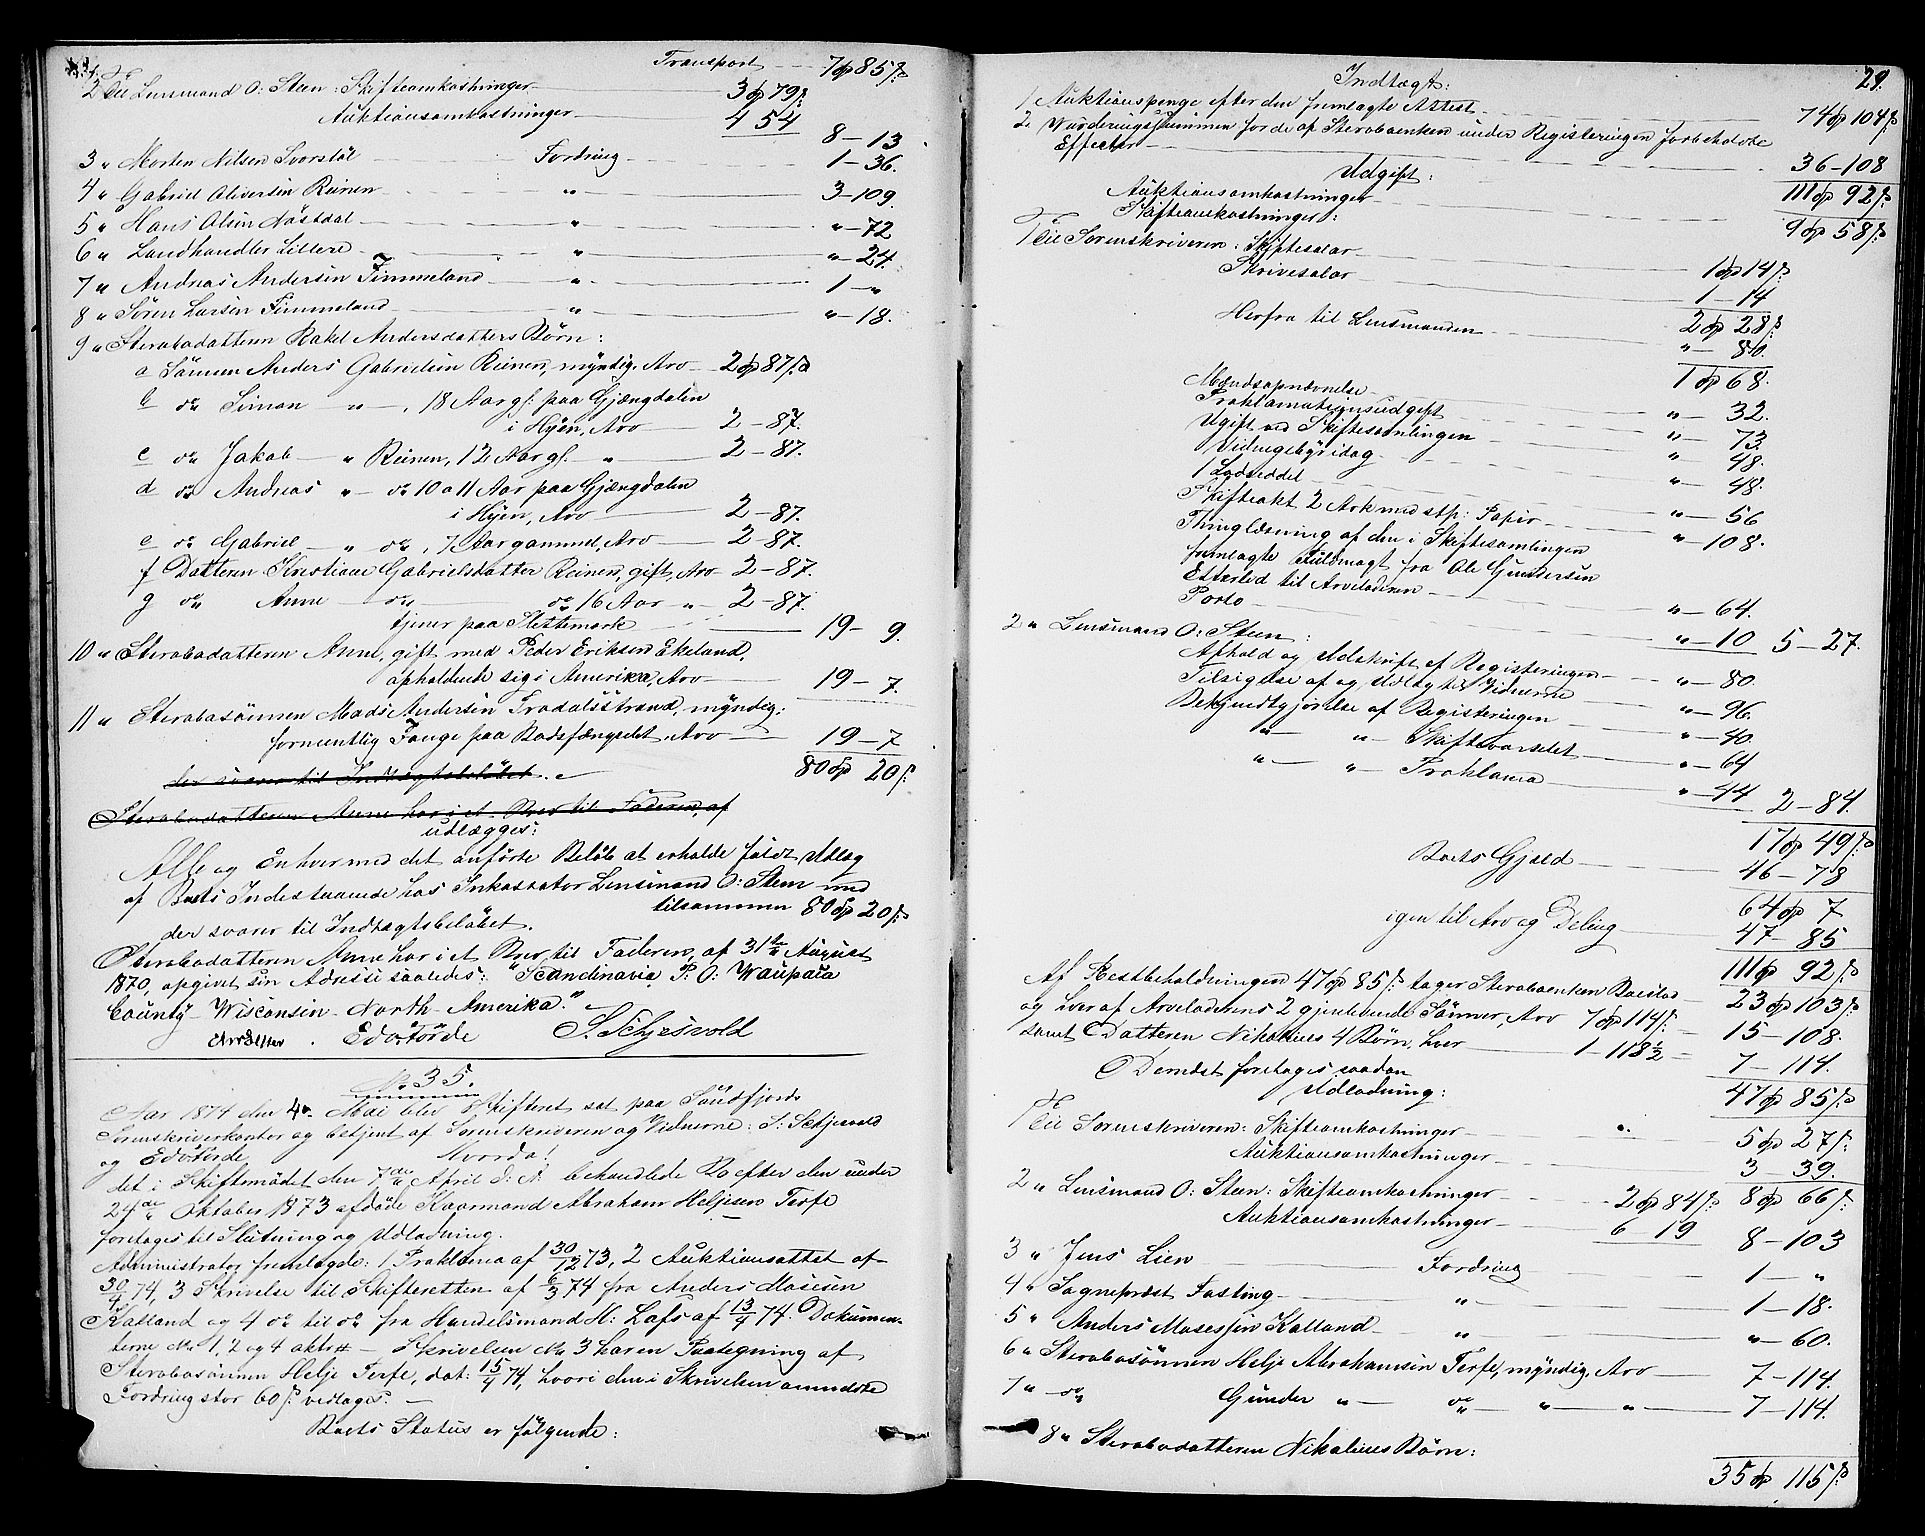 Transport 7 Sp 85 s
2 Til Lensmand O: Steen: Skifteomkostninger 3 Sp 79 s
Auktionsomkostninger 4 54
8 - 13
3 " Morten Nilsen Svorstøl Fordring 1 - 36.
4 " Gabriel Oliversen Reinen " 3 - 109.
5 " Hans Olsen Nøstdal " " - 72
6 " Landhandler Littere " " - 24.
7 " Andreas Andersen Timmeland " 1 - "
8 " Sören Larsen Timmeland " " - 18.
9 " Sterbodatteren Rakel Andersdatters Börn:
a Sönnen Anders Gabrielsen Reinen, myndig, Arv 2 Sp 87 s
b do Simon " , 18 Aar gl: paa Gjængdalen
i Hyen, Arv 2 - 87.
c do Jakob " Reinen, 12 Aar gl. " 2 - 87.
d do Andreas " do 10 a 11 Aar paa Gjængdalen
i Hyen, Arv 2 - 87.
e do Gabriel " do, 7 Aar gammel, Arv 2 - 87.
f Datteren Kristiane Gabrielsdatter Reinen, gift, Arv 2 - 87.
g do Anne do do 16 Aar " 2 - 87.
tjener paa Slettemark 19 - 9.
10 " Sterbodatteren Anne, gift med Peder Eriksen Ekeland,
opholdende sig i Amerika, Arv 19 - 7.
11 " Sterbosönnen Mads Andersen Fradalsstrand, myndig;
formentlig Fange paa Bodsfængslet, Arv 19 - 7
der svarer til Indtægtsbelöbet. 80 Sp 20 s
Sterbodatteren Anne har i et Brev til Faderen, af
udlægges:
Alle og Enhver med det anførte Beløb at erholde fuldt Udlæg
af Boets Indestaaende hos Inkassator Lensmand O: Steen med
tilsammen 80 Sp 20 s
der svarer til Indtægtsbelöbet.
Sterbodatteren Anne har i et Brev til Faderen, af 31te August
1870, opgivet sin Adresse saaledes: "Scandinavia P: O: Waupaca
County - Wisconsin - North - Amerika."
Edv Förde S. Schjesvold
No 35.
Aar 1874 den 4de Mai blev Skifteret sat paa Söndfjords
Sorenskriverkontor og betjent af Sorenskriveren og Vidnerne: S: Schjesvold
og Edv Förde Hvorda!
det i Skiftemødet den 7de April d: A: behandlede Bo efter den under
24de Oktober 1873 afdöde Kaarmand Abraham Heljesen Terfe
foretoges til Slutning og Udlodning.
Administrator fremlagde: 1 Proklama af 30/12 73, 2 Auktionsattest af
30/4 74, 3 Skrivelse til Skifteretten af 6/3 74 fra Anders Mosesen
Kalland og 4 do til do fra Handelsmand H: Lofs af 13/4 74. Dokumen-
terne No 1, 2 og 4 aktos - Skrivelsen No 3 har en Paategning af
Sterbosönnen Helje Terfe, dat: 15/4 74, hvori den i Skrivelsen anmeldte
Fordring stor 60 s vedtages. -
Boets Status er følgende:
29.
Indtægt:
1 Auktionspenge efter den fremlagte Attest 74 Sp 104 s
2. Vurderingssummen for de af Sterboenken under Registeringen forbeholdte
Effecter 36 - 108
111 Sp 92 s
Udgift:
Auktionsomkostninger 9 Sp 58 s
Skifteomkostninger:
1 Til Sorenskriveren: Skiftesalær 1 Sp 14 s
Skrivesalær 1 - 14
2 Sp 28 s
Herfra til Lensmanden " - 80.
1 Sp 68.
Mændsopnævnelse " - 32.
Proklamationsudgift " - 73.
Ugift ved Skiftesamlingen " - 48.
Vidnegebyr idag " - 48.
1 Lodseddel " - 56
Skifteakt 2 Ark med stp: Papir " - 108.
Thinglæsning af den i Skiftesamlingen
fremlagte Fuldmagt fra Ole Gundersen
Etterlid til Arveladeren " - 64.
Porto " - 10 5 - 27.
2 " Lensmand O: Steen:
Afhold og Udskrift af Registeringen " - 80.
Tilsigelse af og Udlæg til Vidnerne " - 96.
Bekjendtgjørelse af Registeringen " - 40
" " Skiftevarselet " - 64
" " Proklama " - 44 2 - 84.
17 Sp 49 s
Boets Gjæld 46 - 78
64 Sp 7
igen til Arv og Deling 47 - 85
111 Sp 92 s
Af Restbeholdningen 47 Sp 85 s tager Sterboenken Boeslod 23 Sp 103 s
og hver af Arveladerens 2 gjenlevende Sönner, Arv 7 Sp 114 s 15 - 108.
samt Datteren Nikolines 4 Börn, hver 1 - 118 1/2 7 - 114.
47 Sp 85 s
Dernæst foretoges saadan
Udlodning:
1 Til Sorenskriveren: Skifteomkostninger 5 Sp 27 s
Auktionsomkostninger 3 - 39.
8 Sp 66 s
2 " Lensmand O: Steen: Skifteomkostninger 2 Sp 84 s
Auktionsomkostninger 6 19 8 - 103
3 " Jens Lien Fordring 1 - "
4 " Sogneprest Fasting " 1 - 18.
5 " Anders Mosessen Kalland " " - 60.
6 " Sterbosönnen Helje Abrahamsen Terfe, myndig, Arv 7 - 114.
7 " do Gunder " do " " 7 - 114.
8 " Sterbodatteren Nikolines Börn:
35 Sp 115 s